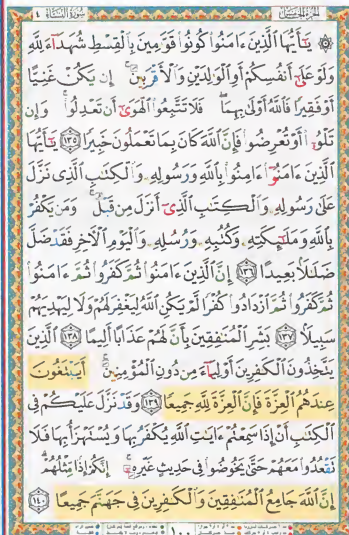 سورة النساء ٤
الجزء الخامس
۞ يَٰٓأَيُّهَا ٱلَّذِينَ ءَامَنُوا۟ كُونُوا۟ قَوَّٰمِينَ بِٱلْقِسْطِ شُهَدَآءَ لِلَّهِ
وَلَوْ عَلَىٰٓ أَنفُسِكُمْ أَوِ ٱلْوَٰلِدَيْنِ وَٱلْأَقْرَبِينَ ۚ إِن يَكُنْ غَنِيًّا
أَوْ فَقِيرًا فَٱللَّهُ أَوْلَىٰ بِهِمَا ۖ فَلَا تَتَّبِعُوا۟ ٱلْهَوَىٰٓ أَن تَعْدِلُوا۟ ۚ وَإِن
تَلْوُۥٓا۟ أَوْ تُعْرِضُوا۟ فَإِنَّ ٱللَّهَ كَانَ بِمَا تَعْمَلُونَ خَبِيرًا ١٣٥ يَٰٓأَيُّهَا
ٱلَّذِينَ ءَامَنُوٓا۟ ءَامِنُوا۟ بِٱللَّهِ وَرَسُولِهِۦ وَٱلْكِتَٰبِ ٱلَّذِى نَزَّلَ
عَلَىٰ رَسُولِهِۦ وَٱلْكِتَٰبِ ٱلَّذِىٓ أَنزَلَ مِن قَبْلُ ۚ وَمَن يَكْفُرْ
بِٱللَّهِ وَمَلَٰٓئِكَتِهِۦ وَكُتُبِهِۦ وَرُسُلِهِۦ وَٱلْيَوْمِ ٱلْءَاخِرِ فَقَدْ ضَلَّ
ضَلَٰلًۢا بَعِيدًا ١٣٦ إِنَّ ٱلَّذِينَ ءَامَنُوا۟ ثُمَّ كَفَرُوا۟ ثُمَّ ءَامَنُوا۟
ثُمَّ كَفَرُوا۟ ثُمَّ ٱزْدَادُوا۟ كُفْرًا لَّمْ يَكُنِ ٱللَّهُ لِيَغْفِرَ لَهُمْ وَلَا لِيَهْدِيَهُمْ
سَبِيلًۢا ١٣٧ بَشِّرِ ٱلْمُنَٰفِقِينَ بِأَنَّ لَهُمْ عَذَابًا أَلِيمًا ١٣٨ ٱلَّذِينَ
يَتَّخِذُونَ ٱلْكَٰفِرِينَ أَوْلِيَآءَ مِن دُونِ ٱلْمُؤْمِنِينَ ۚ أَيَبْتَغُونَ
عِندَهُمُ ٱلْعِزَّةَ فَإِنَّ ٱلْعِزَّةَ لِلَّهِ جَمِيعًا ١٣٩ وَقَدْ نَزَّلَ عَلَيْكُمْ فِى
ٱلْكِتَٰبِ أَنْ إِذَا سَمِعْتُمْ ءَايَٰتِ ٱللَّهِ يُكْفَرُ بِهَا وَيُسْتَهْزَأُ بِهَا فَلَا
تَقْعُدُوا۟ مَعَهُمْ حَتَّىٰ يَخُوضُوا۟ فِى حَدِيثٍ غَيْرِهِۦٓ ۚ إِنَّكُمْ إِذًا مِّثْلُهُمْ ۗ
إِنَّ ٱللَّهَ جَامِعُ ٱلْمُنَٰفِقِينَ وَٱلْكَٰفِرِينَ فِى جَهَنَّمَ جَمِيعًا ١٤٠
١٠٠